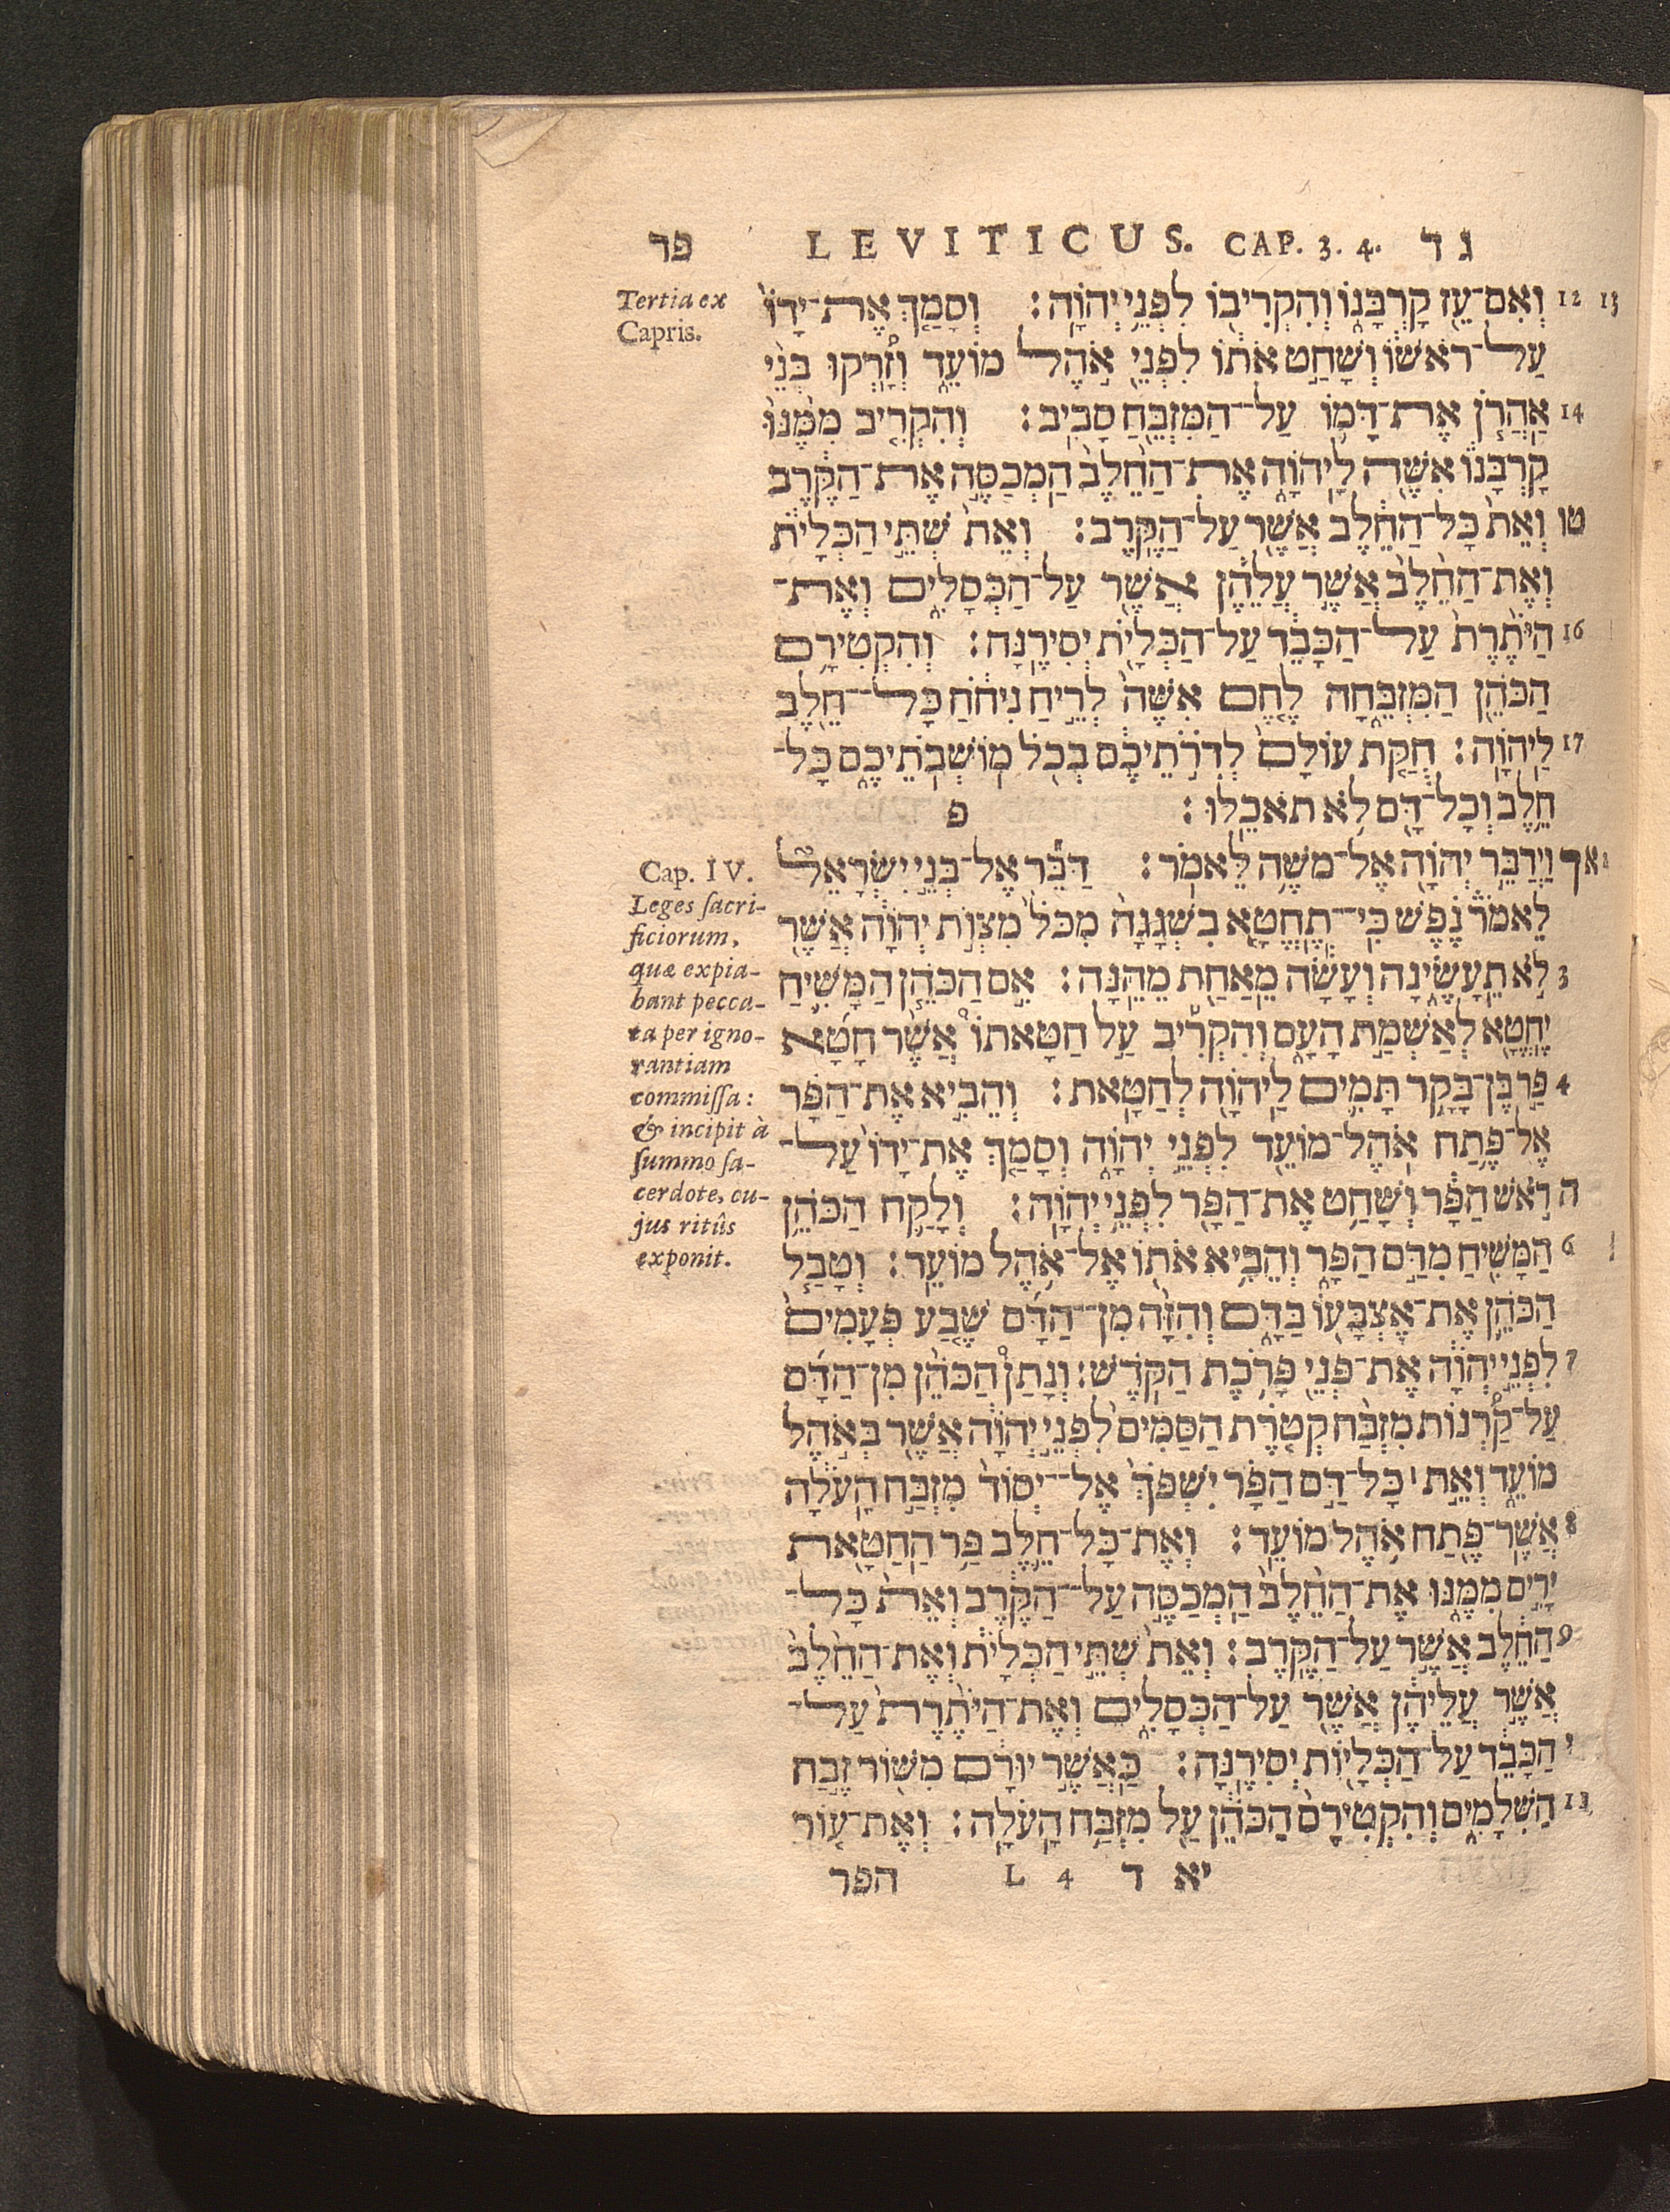 ג ד LEVITICUS. CAP. 3. 4. פד
Tertia ex
Capris.
12 13 וְאִם־עֵ֖ז קָרְבָּנ֑וֹ וְהִקְרִיב֖וֹ לִפְנֵ֥י יְהוָֽה׃ וְסָמַ֤ךְ אֶת־יָדוֹ֙
עַל־רֹאשׁ֔וֹ וְשָׁחַ֣ט אֹת֔וֹ לִפְנֵ֖י אֹ֣הֶל מוֹעֵ֑ד וְ֠זָרְקוּ בְּנֵ֨י
14 אַהֲרֹ֧ן אֶת־דָּמ֛וֹ עַל־הַמִּזְבֵּ֖חַ סָבִֽיב׃ וְהִקְרִ֤יב מִמֶּ֙נּוּ֙
קָרְבָּנ֔וֹ אִשֶּׁ֖ה לַֽיהוָ֑ה אֶת־הַחֵ֙לֶב֙ הַֽמְכַסֶּ֣ה אֶת־הַקֶּ֔רֶב
טו וְאֵת֙ כָּל־הַחֵ֔לֶב אֲשֶׁ֖ר עַל־הַקֶּֽרֶב׃ וְאֵת֙ שְׁתֵּ֣י הַכְּלָיֹ֔ת
וְאֶת־הַחֵ֙לֶב֙ אֲשֶׁ֣ר עֲלֵהֶ֔ן אֲשֶׁ֖ר עַל־הַכְּסָלִ֑ים וְאֶת־
16 הַיֹּתֶ֙רֶת֙ עַל־הַכָּבֵ֔ד עַל־הַכְּלָיֹ֖ת יְסִירֶֽנָּה׃ וְהִקְטִירָ֥ם
הַכֹּהֵ֖ן הַמִּזְבֵּ֑חָה לֶ֤חֶם אִשֶּׁה֙ לְרֵ֣יחַ נִיחֹ֔חַ כָּל־חֵ֖לֶב
17 לַיהוָֽה׃ חֻקַּ֤ת עוֹלָם֙ לְדֹרֹ֣תֵיכֶ֔ם בְּכֹ֖ל מֽוֹשְׁבֹתֵיכֶ֑ם כָּל־
חֵ֥לֶב וְכָל־דָּ֖ם לֹ֥א תֹאכֵֽלוּ׃ פ
Cap. IV.
Leges sacri-
ficiorum,
quæ expia-
bant pecca-
ta per igno-
rantiam
commissa:
& incipit à
summo sa-
cerdote, cu-
jus ritûs
exponit.
אד 2 וַיְדַבֵּ֥ר יְהוָ֖ה אֶל־מֹשֶׁ֥ה לֵּאמֹֽר׃ דַּבֵּ֞ר אֶל־בְּנֵ֣י יִשְׂרָאֵל֮
לֵאמֹר֒ נֶ֗פֶשׁ כִּֽי־תֶחֱטָ֤א בִשְׁגָגָה֙ מִכֹּל֙ מִצְוֺ֣ת יְהוָ֔ה אֲשֶׁ֖ר
3 לֹ֣א תֵעָשֶׂ֑ינָה וְעָשָׂ֕ה מֵאַחַ֖ת מֵהֵֽנָּה׃ אִ֣ם הַכֹּהֵ֧ן הַמָּשִׁ֛יחַ
יֶחֱטָ֖א לְאַשְׁמַ֣ת הָעָ֑ם וְהִקְרִ֡יב עַ֣ל חַטָּאתוֹ֩ אֲשֶׁ֨ר חָטָ֜א
4 פַּ֣ר בֶּן־בָּקָ֥ר תָּמִ֛ים לַיהוָ֖ה לְחַטָּֽאת׃ וְהֵבִ֣יא אֶת־הַפָּ֗ר
אֶל־פֶּ֛תַח אֹ֥הֶל־מוֹעֵ֖ד לִפְנֵ֣י יְהוָ֑ה וְסָמַ֤ךְ אֶת־יָדוֹ֙ עַל־
ה רֹ֣אשׁ הַפָּ֔ר וְשָׁחַ֥ט אֶת־הַפָּ֖ר לִפְנֵ֥י יְהוָֽה׃ וְלָקַ֛ח הַכֹּהֵ֥ן
6 הַמָּשִׁ֖יחַ מִדַּ֣ם הַפָּ֑ר וְהֵבִ֥יא אֹת֖וֹ אֶל־אֹ֥הֶל מוֹעֵֽד׃ וְטָבַ֧ל
הַכֹּהֵ֛ן אֶת־אֶצְבָּע֖וֹ בַּדָּ֑ם וְהִזָּ֨ה מִן־הַדָּ֜ם שֶׁ֤בַע פְּעָמִים֙
7 לִפְנֵ֣י יְהוָ֔ה אֶת־פְּנֵ֖י פָּרֹ֥כֶת הַקֹּֽדֶשׁ׃ וְנָתַן֩ הַכֹּהֵ֨ן מִן־הַדָּ֜ם
עַל־קַ֠רְנוֹת מִזְבַּ֨ח קְטֹ֤רֶת הַסַּמִּים֙ לִפְנֵ֣י יְהוָ֔ה אֲשֶׁ֖ר בְּאֹ֣הֶל
מוֹעֵ֑ד וְאֵ֣ת ׀ כָּל־דַּ֣ם הַפָּ֗ר יִשְׁפֹּךְ֙ אֶל־יְסוֹד֙ מִזְבַּ֣ח הָעֹלָ֔ה
8 אֲשֶׁר־פֶּ֖תַח אֹ֥הֶל מוֹעֵֽד׃ וְאֶת־כָּל־חֵ֛לֶב פַּ֥ר הַֽחַטָּ֖את
יָרִ֣ים מִמֶּ֑נּוּ אֶת־הַחֵ֙לֶב֙ הַֽמְכַסֶּ֣ה עַל־הַקֶּ֔רֶב וְאֵת֙ כָּל־
9 הַחֵ֔לֶב אֲשֶׁ֖ר עַל־הַקֶּֽרֶב׃ וְאֵת֙ שְׁתֵּ֣י הַכְּלָיֹ֔ת וְאֶת־הַחֵ֙לֶב֙
אֲשֶׁ֣ר עֲלֵיהֶ֔ן אֲשֶׁ֖ר עַל־הַכְּסָלִ֑ים וְאֶת־הַיֹּתֶ֙רֶת֙ עַל־
י הַכָּבֵ֔ד עַל־הַכְּלָי֖וֹת יְסִירֶֽנָּה׃ כַּאֲשֶׁ֣ר יוּרָ֔ם מִשּׁ֖וֹר זֶ֣בַח
11 הַשְּׁלָמִ֑ים וְהִקְטִירָם֙ הַכֹּהֵ֔ן עַ֖ל מִזְבַּ֥ח הָעֹלָֽה׃ וְאֶת־ע֤וֹר
יא ד L 4 הפר